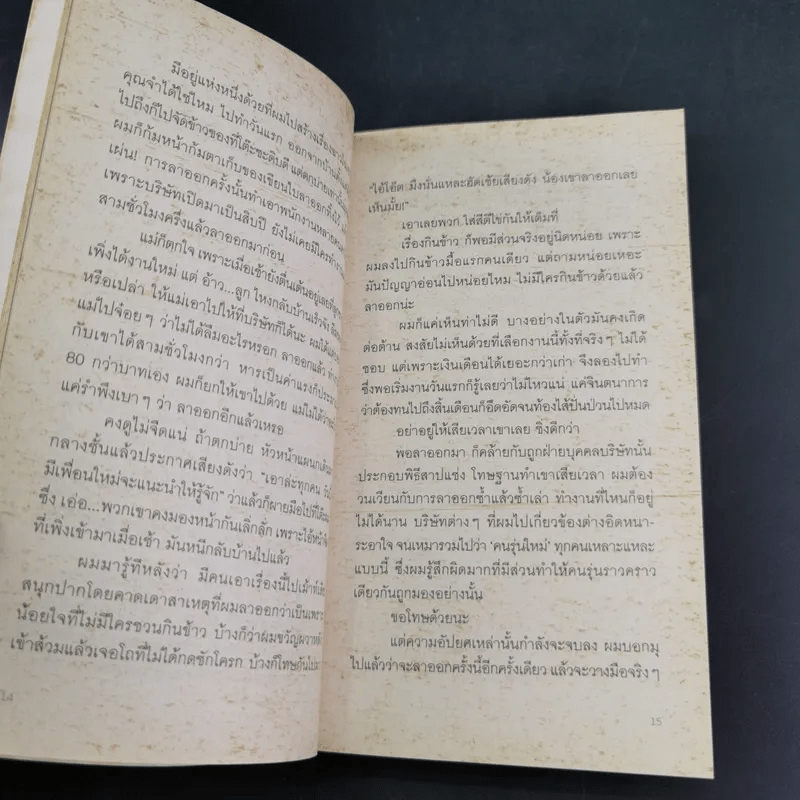 มีอยู่แห่งหนึ่งด้วยที่ผมไปสร้างเรื่อง
คุณจำได้ใช่ไหม ไปทำวันแรก ออกจากบ้าน
ไปถึงก็ไปจัดข้าวของที่โต๊ะซะดิบดี แต่ตกบ่าย
ผมก็ก้มหน้าก้มตาเก็บของเขียนใบลาออกทิ้งไว้
เผ่น! การลาออกครั้งนั้นทำเอาพนักงานหลายคน
เพราะบริษัทเปิดมาเป็นสิบปี ยังไม่เคยมีใคร
สามชั่วโมงครึ่งแล้วลาออกมาก่อน
แม่ก็ตกใจ เพราะเมื่อเช้ายังตื่นเต้นอยู่เลยที่
เพิ่งได้งานใหม่ แต่ อ้าว...ลูก ไหงกลับบ้านเร็วจัง
หรือเปล่า ให้แม่เอาไปให้ที่บริษัทก็ได้นะ ผมได้แต่
แม่ไปจ๋อยๆ ว่าไม่ได้ลืมอะไรหรอก ลาออกแล้ว
กับเขาได้สามชั่วโมงกว่า หารเป็นค่าแรงก็
80 กว่าบาทเอง ผมก็ยกให้เขาไปด้วย แม่ไม่ได้ว่า
แค่รำพึงเบาๆ ว่า ลาออกอีกแล้วเหรอ
คงดูไม่จืดแน่ ถ้าตกบ่าย หัวหน้าแผนก
กลางชั้นแล้วประกาศเสียงดังว่า "เอาล่ะทุกคน
มีเพื่อนใหม่จะแนะนำให้รู้จัก" ว่าแล้วก็ผายมือไปที่
ซึ่ง เอ่อ...พวกเขาคงมองหน้ากันเลิ่กลั่ก เพราะไอ้
ที่เพิ่งเข้ามาเมื่อเช้า มันหนีกลับบ้านไปแล้ว
ผมมารู้ทีหลังว่า มีคนเอาเรื่องนี้ไปเม้าท์
สนุกปากโดยคาดเดาสาเหตุที่ผมลาออกว่าเป็นเพราะ
น้อยใจที่ไม่มีใครชวนกินข้าว บ้างก็ว่าผมขวัญผวา
เข้าส้วมแล้วเจอโถที่ไม่ได้กดชักโครก บ้างก็โทษกัน
14
"ไอ้โอ๊ต มึงนั่นแหละฮัดเช้ยเสียงดัง น้องเขาลาออกเลย
เห็นมั้ย!"
เอาเลยพวก ใส่สีตีไข่กันให้เต็มที่
เรื่องกินข้าว ก็พอมีส่วนจริงอยู่นิดหน่อย เพราะ
ผมลงไปกินข้าวมื้อแรกคนเดียว แต่ถามหน่อยเหอะ
มันปัญญาอ่อนไปหน่อยไหม ไม่มีใครกินข้าวด้วยแล้ว
ลาออกน่ะ
ผมก็แค่เห็นท่าไม่ดี บางอย่างในตัวมันคงเกิด
ต่อต้าน สงสัยไม่เห็นด้วยที่เลือกงานนี้ทั้งที่จริงๆ ไม่ได้
ชอบ แต่เพราะเงินเดือนได้เยอะกว่าเก่า จึงลองไปทำ
ซึ่งพอเริ่มงานวันแรกก็รู้เลยว่าไม่ไหวแน่ แค่จินตนาการ
ว่าต้องทนไปถึงสิ้นเดือนก็อึดอัดจนท้องไส้ปั่นป่วนไปหมด
อย่าอยู่ให้เสียเวลาเขาเลย ชิ่งดีกว่า
พอลาออกมา ก็คล้ายกับถูกฝ่ายบุคคลบริษัทนั้น
ประกอบพิธีสาปแช่ง โทษฐานทำเขาเสียเวลา ผมต้อง
วนเวียนกับการลาออกซ้ำแล้วซ้ำเล่า ทำงานที่ไหนก็อยู่
ไม่ได้นาน บริษัทต่างๆ ที่ผมไปเกี่ยวข้องต่างอิดหนา-
ระอาใจ จนเหมารวมไปว่า 'คนรุ่นใหม่' ทุกคนเหลาะแหละ
แบบนี้ ซึ่งผมรู้สึกผิดมากที่มีส่วนทำให้คนรุ่นราวคราว
เดียวกันถูกมองอย่างนั้น
ขอโทษด้วยนะ
แต่ความอัปยศเหล่านั้นกำลังจะจบลง ผมบอกมุ
ไปแล้วว่าจะลาออกครั้งนี้อีกครั้งเดียว แล้วจะวางมือจริงๆ
15